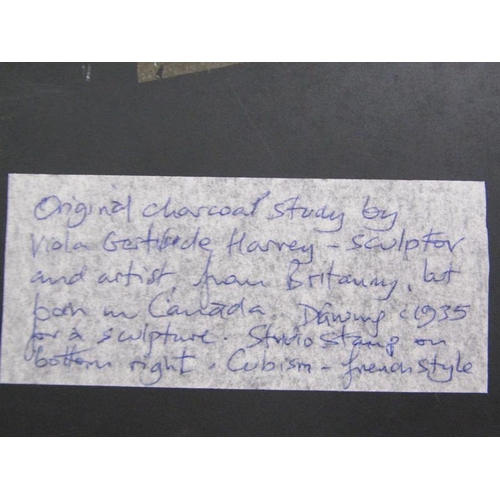 Original charcoal study by
Viola Gertrude Harvey - sculptor
and artist, from Britanny, but
born in Canada. Drawing c1935
for a sculpture. Studio Stamp on
bottom right. Cubism - french style